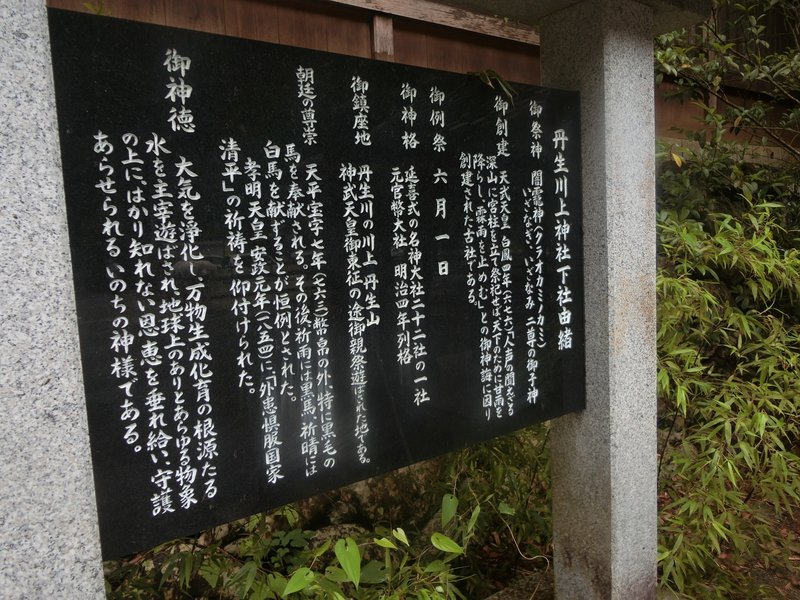 丹生川上神社下社由緒
御祭神 闇龗神（クラオカミノカミ）
いざなぎ、いざなみ 二尊の御子神
御創建 天武天皇 白鳳四年（六七六）「人声の聞えざる
深山に宮柱を立て祭祀せば、天下のために甘雨を
降らし、霖雨を止めむ」との御神誨に因り
創建された古社である。
御例祭 六月一日
御神格 延喜式の名神大社二十二社の一社
元官幣大社 明治四年列格
御鎮座地 丹生川の川上 丹生山
神武天皇御東征の途御親祭遊ばされた地である。
朝廷の尊崇 天平宝字七年（七六三）幣帛の外、特に黒毛の
馬を奉献される。その後祈雨には黒馬、祈晴には
白馬を献ずることが恒例とされた。
孝明天皇 安政元年（八五四）に「外患惧服国家
清平」の祈祷を仰付けられた。
御神徳 大気を浄化し、万物生成化育の根源たる
水を主宰遊ばされ、地球上のありとあらゆる物象
の上に、はかり知れない恩恵を垂れ給い、守護
あらせられるいのちの神様である。